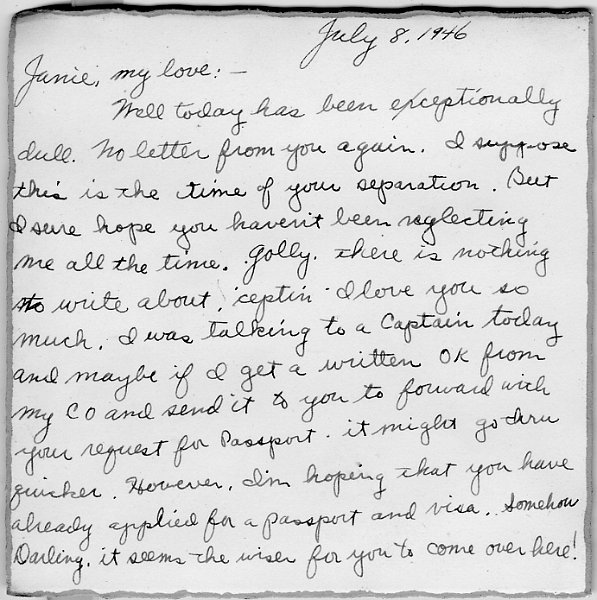 July 8, 1946
Janie, my love: —
Well today has been exceptionally
dull. No letter from you again. I suppose
this is the time of your separation. But
I sure hope you haven't been neglecting
me all the time. Golly, there is nothing
to write about, 'ceptin' I love you so
much. I was talking to a Captain today
and maybe if I get a written OK from
my CO and send it to you to forward with
your request for Passport. it might go thru
quicker. However, I'm hoping that you have
already applied for a passport and visa. Somehow
Darling, it seems the wiser for you to come over here!